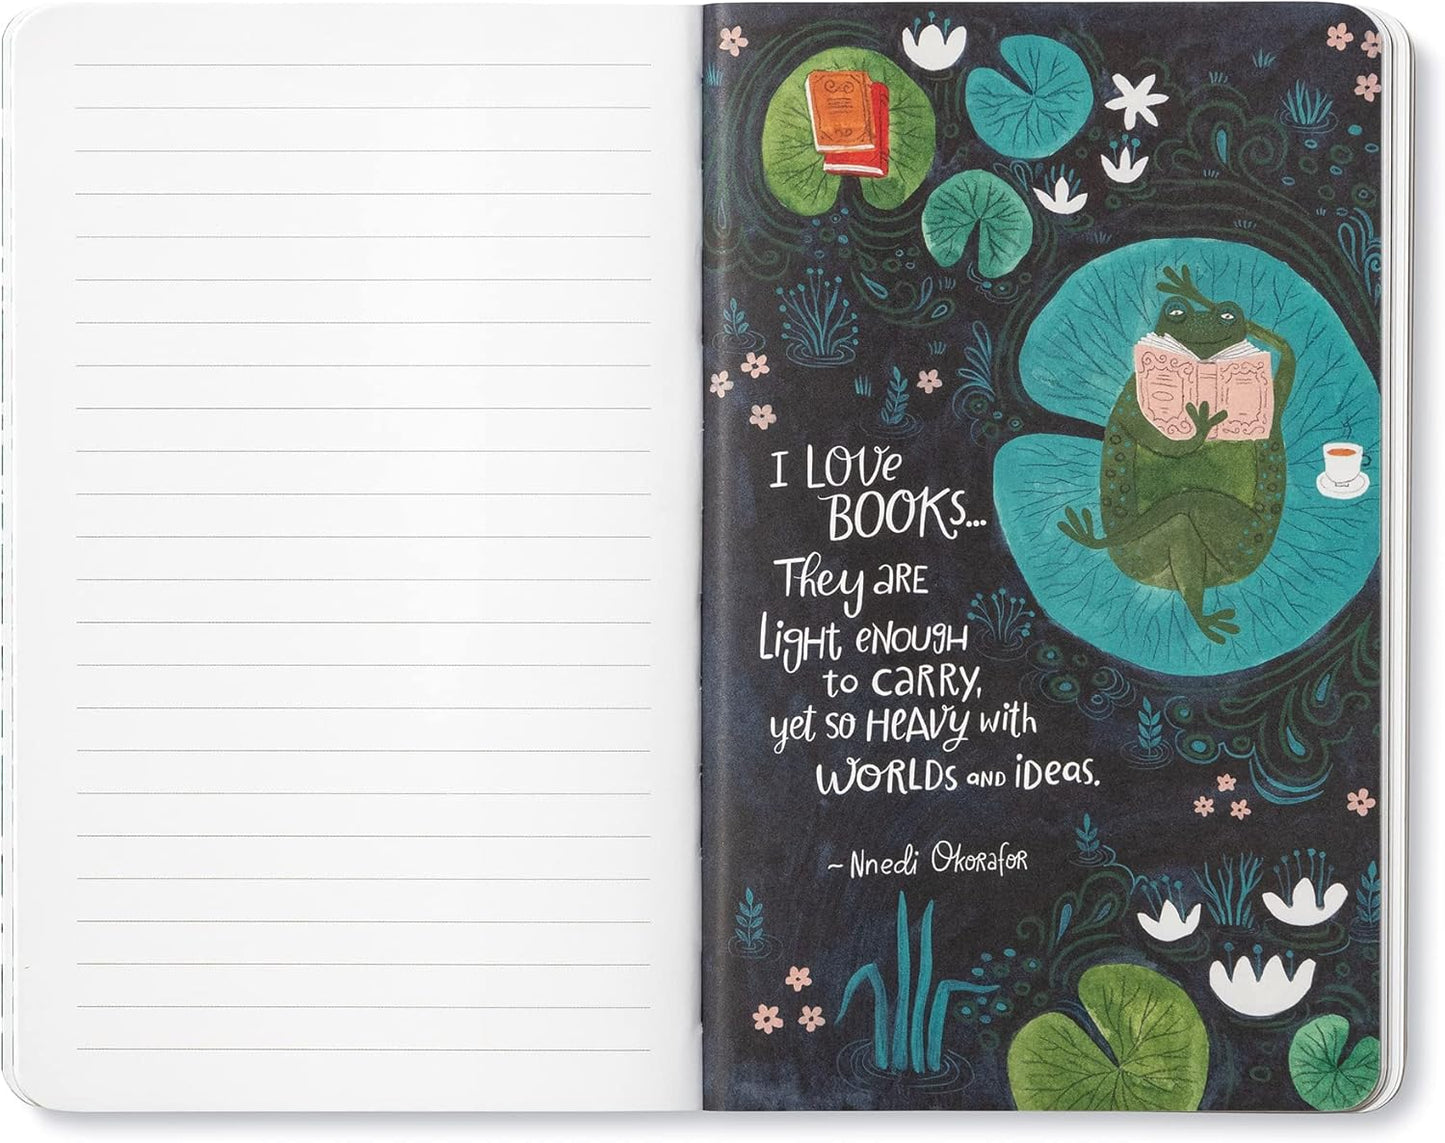 I LOVE
BOOKS...
They are
Light enough
to carry,
yet so heavy with
worlds and ideas.
~ Nnedi Okorafor